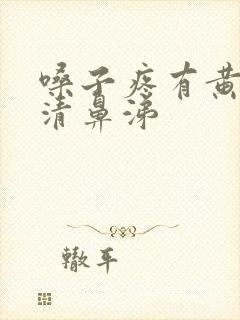 嗓子疼有黄
清鼻涕
辙平